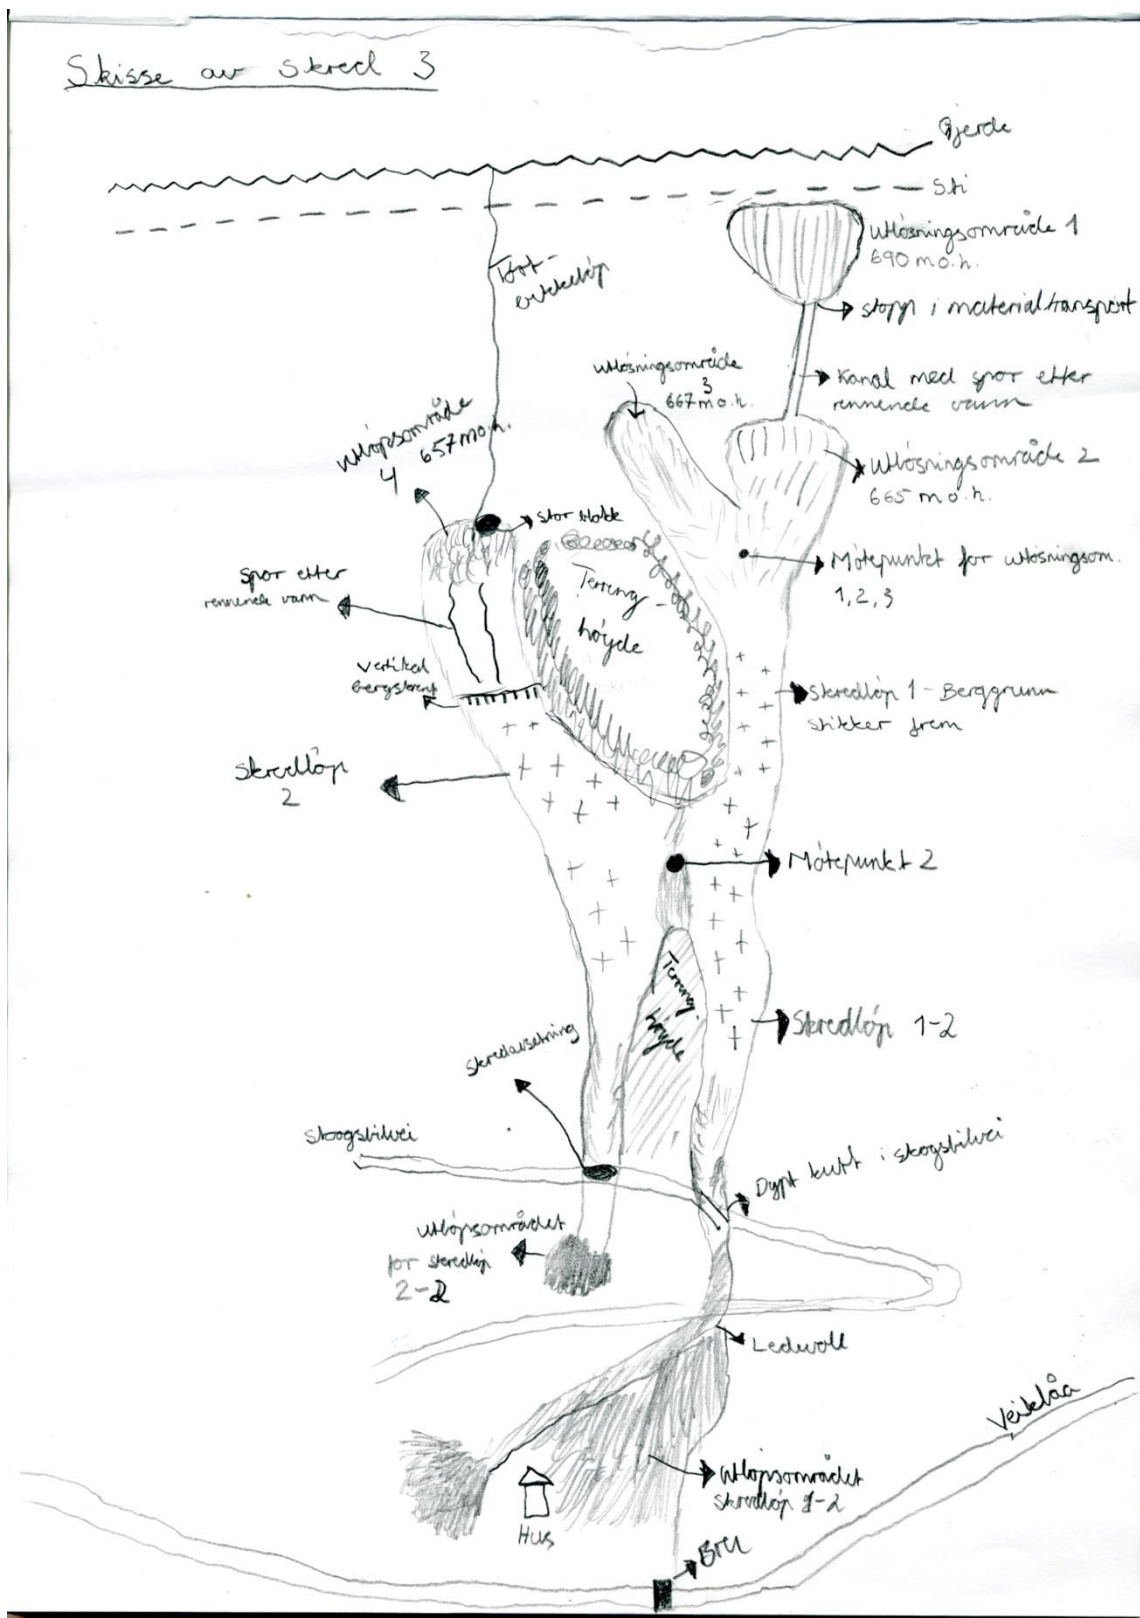 Skisse av skred 3
Gjerde
Sti
Utløsningsområde 1
690 m o.h.
stopp i materialtransport
Tørt-
bekkeløp
Utløsningsområde
3
667 m o.h.
Kanal med spor etter
rennende vann
Utløpsområde
4 657 m o.h.
Utløsningsområde 2
665 m o.h.
Stor blokk
Møtepunkt for utløsningsom.
1, 2, 3
Spor etter
rennende vann
Terreng-
høyde
Vertikal
bergskrent
Skredløp 1 - Berggrunn
stikker frem
Skredløp
2
Møtepunkt 2
Terreng-
høyde
Skredløp 1-2
Skredavsetning
Skogsbilvei
Dypt kutt i skogsbilvei
Utløpsområdet
for skredløp
2-2
Ledevoll
Veiklåa
Utløpsområdet
skredløp 1-2
Hus
Bru